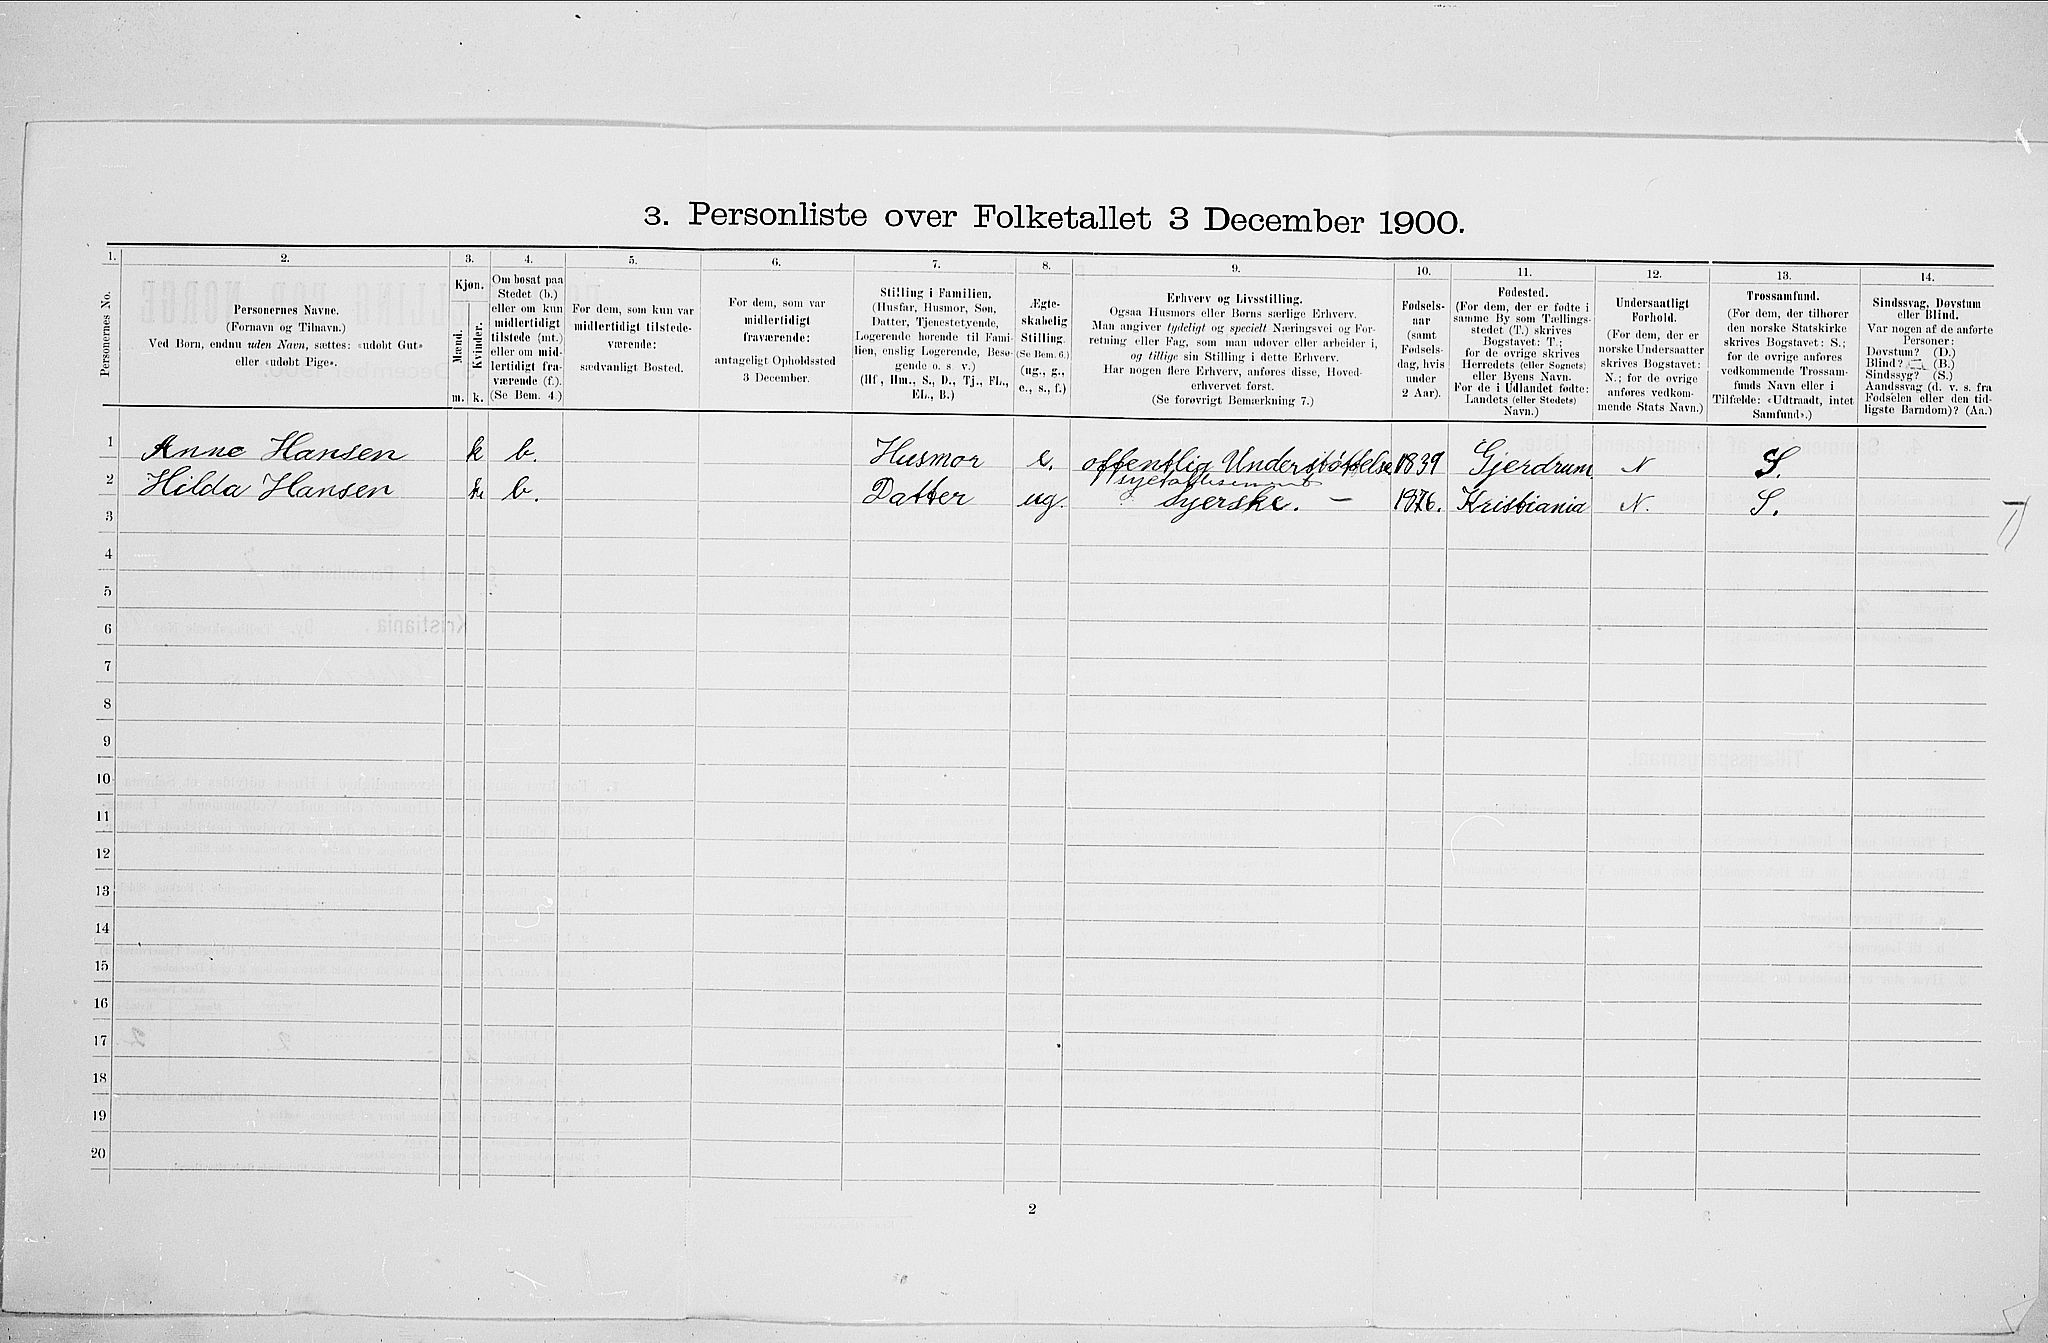 3. Personliste over Folketallet 3 December 1900.
1. 2. 3. 4. 5. 6. 7. 8. 9. 10. 11. 12. 13. 14.
Personernes No.
Personernes Navne.
(Fornavn og Tilnavn.)
Ved Børn, endnu uden Navn, sættes: «udøbt Gut»
eller «udøbt Pige».
Kjøn.
Mænd.
Kvinder.
m. k.
Om bosat paa
Stedet (b.)
eller om kun
midlertidigt
tilstede (mt.)
eller om mid-
lertidigt fra-
værende (f.).
(Se Bem. 4.)
For dem, som kun var
midlertidigt tilstede-
værende:
sædvanligt Bosted.
For dem, som var
midlertidigt
fraværende:
antageligt Opholdssted
3 December.
Stilling i Familien.
(Husfar, Husmor, Søn,
Datter, Tjenestetyende,
Logerende hørende til Fami-
lien, enslig Logerende, Besø-
gende o. s. v.)
(Hf., Hm., S., D., Tj., FL.,
EL., B.)
Ægte-
skabelig
Stilling.
(Se Bem. 6.)
(ug., g.,
e., s., f.)
Erhverv og Livsstilling.
Ogsaa Husmors eller Børns særlige Erhverv.
Man angiver tydeligt og specielt Næringsvei og For-
retning eller Fag, som man udøver eller arbeider i,
og tillige sin Stilling i dette Erhverv.
Har nogen flere Erhverv, anføres disse, Hoved-
erhvervet først.
(Se forøvrigt Bemærkning 7.)
Fødsels-
aar
(samt
Fødsels-
dag, hvis
under
2 Aar).
Fødested.
(For dem, der er fødte i
samme By som Tællings-
stedet (T.) skrives
Bogstavet: T.;
for de øvrige skrives
Herredets (eller Sognets)
eller Byens Navn.
For de i Udlandet fødte:
Landets (eller Stedets)
Navn.)
Undersaatligt
Forhold.
(For dem, der er
norske Undersaatter
skrives Bogstavet:
N.; for de øvrige
anføres vedkom-
mende Stats Navn.)
Trossamfund.
(For dem, der tilhører
den norske Statskirke
skrives Bogstavet: S.;
for de øvrige anføres
vedkommende Trossam-
funds Navn eller i
Tilfælde: «Udtraadt, intet
Samfund».)
Sindssvag, Døvstum
eller Blind.
Var nogen af de anførte
Personer:
Døvstum? (D.)
Blind? (B.)
Sindssyg? (S.)
Aandssvag (d. v. s. fra
Fødselen eller den tid-
ligste Barndom)? (Aa.)
1 Anne Hansen k b. Husmor e. offentlig Understøttelse 1839 Gjerdrum N S.
2 Hilda Hansen k b. Datter ug. Syerske. – 1876. Kristiania N. S.
3
4
5
6
7
8
9
10
11
12
13
14
15
16
17
18
19
20
2